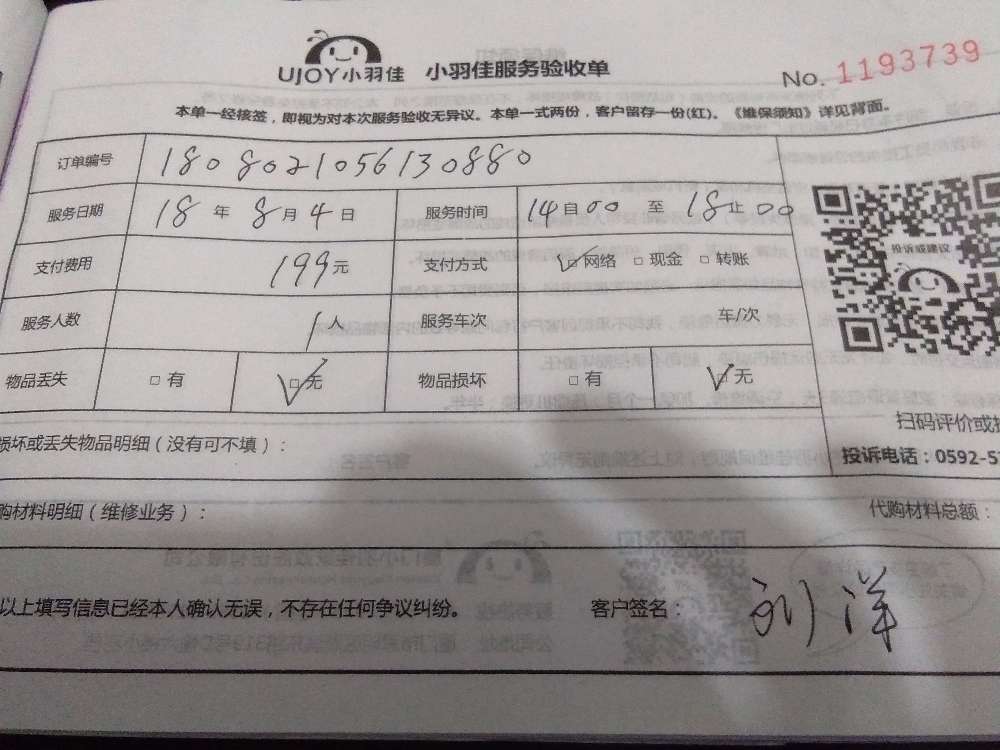 UJOY小羽佳 小羽佳服务验收单 No. 1193739
本单一经核签，即视为对本次服务验收无异议。本单一式两份，客户留存一份(红)。《维保须知》详见背面。
订单编号 1808021056130880
服务日期 18 年 8 月 4 日 服务时间 14 自 00 至 18 止 00
支付费用 199 元 支付方式 ☑ 网络 □ 现金 □ 转账
投诉或建议
服务人数 1 人 服务车次 车/次
物品丢失 □ 有 ☑ 无 物品损坏 □ 有 ☑ 无
扫码评价或
损坏或丢失物品明细（没有可不填）：
投诉电话：0592-5
购材料明细（维修业务）： 代购材料总额：
以上填写信息已经本人确认无误，不存在任何争议纠纷。 客户签名： 刘洋